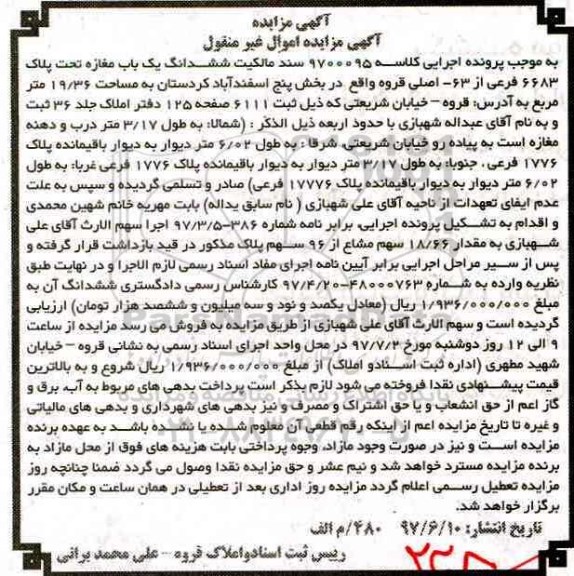 آگهی مزایده
آگهی مزایده اموال غیر منقول
به موجب پرونده اجرایی کلاسه ۹۷۰۰۰۹۵ سند مالکیت ششدانگ یک باب مغازه تحت پلاک
۶۶۸۳ فرعی از ۶۳- اصلی قروه واقع در بخش پنج اسفندآباد کردستان به مساحت ۱۹/۳۶ متر
مربع به آدرس: قروه – خیابان شریعتی که ذیل ثبت ۶۱۱۱ صفحه ۱۲۵ دفتر املاک جلد ۳۶ ثبت
و به نام آقای عبداله شهبازی با حدود اربعه ذیل الذکر : (شمالا: به طول ۳/۱۷ متر درب و دهنه
مغازه است به پیاده رو خیابان شریعتی، شرقا : به طول ۶/۰۲ متر دیوار به دیوار باقیمانده پلاک
۱۷۷۶ فرعی . جنوبا: به طول ۳/۱۷ متر دیوار به دیوار باقیمانده پلاک ۱۷۷۶ فرعی غربا: به طول
۶/۰۲ متر دیوار به دیوار باقیمانده پلاک ۱۷۷۷۶ فرعی) صادر و تسلمی گردیده و سپس به علت
عدم ایفای تعهدات از ناحیه آقای علی شهبازی ( نام سابق یداله) بابت مهریه خانم شهین محمدی
و اقدام به تشکیل پرونده اجرایی، برابر نامه شماره ۳۸۶-۹۷/۳/۵ اجرا سهم الارث آقای علی
شهبازی به مقدار ۱۸/۶۶ سهم مشاع از ۹۶ سهم پلاک مذکور در قید بازداشت قرار گرفته و
پس از سیر مراحل اجرایی برابر آیین نامه اجرای مفاد اسناد رسمی لازم الاجرا و در نهایت طبق
نظریه وارده به شماره ۴۸۰۰۰۷۶۳-۹۷/۴/۲۰ کارشناس رسمی دادگستری ششدانگ آن به
مبلغ ۱/۹۳۶/۰۰۰/۰۰۰ ریال (معادل یکصد و نود و سه میلیون و ششصد هزار تومان) ارزیابی
گردیده است و سهم الارث آقای علی شهبازی از طریق مزایده به فروش می رسد مزایده از ساعت
۹ الی ۱۲ روز دوشنبه مورخ ۹۷/۷/۲ در محل واحد اجرای اسناد رسمی به نشانی قروه – خیابان
شهید مطهری (اداره ثبت اسنادو املاک) از مبلغ ۱/۹۳۶/۰۰۰/۰۰۰ ریال شروع و به بالاترین
قیمت پیشنهادی نقدا فروخته می شود لازم بذکر است پرداخت بدهی های مربوط به آب، برق و
گاز اعم از حق انشعاب و یا حق اشتراک و مصرف و نیز بدهی های شهرداری و بدهی های مالیاتی
و غیره تا تاریخ مزایده اعم از اینکه رقم قطعی آن معلوم شده یا نشده باشد به عهده برنده
مزایده است و نیز در صورت وجود مازاد، وجوه پرداختی بابت هزینه های فوق از محل مازاد به
برنده مزایده مسترد خواهد شد و نیم عشر و حق مزایده نقدا وصول می گردد ضمنا چنانچه روز
مزایده تعطیل رسمی اعلام گردد مزایده روز اداری بعد از تعطیلی در همان ساعت و مکان مقرر
برگزار خواهد شد.
تاریخ انتشار: ۹۷/۶/۱۰ ۴۸۰/م الف
رییس ثبت اسنادواملاک قروه – علی محمد برانی